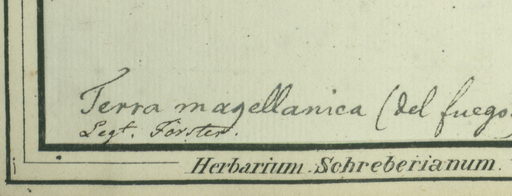 Terra magellanica (del fuego.
Legt. Forster.
Herbarium Schreberianum.